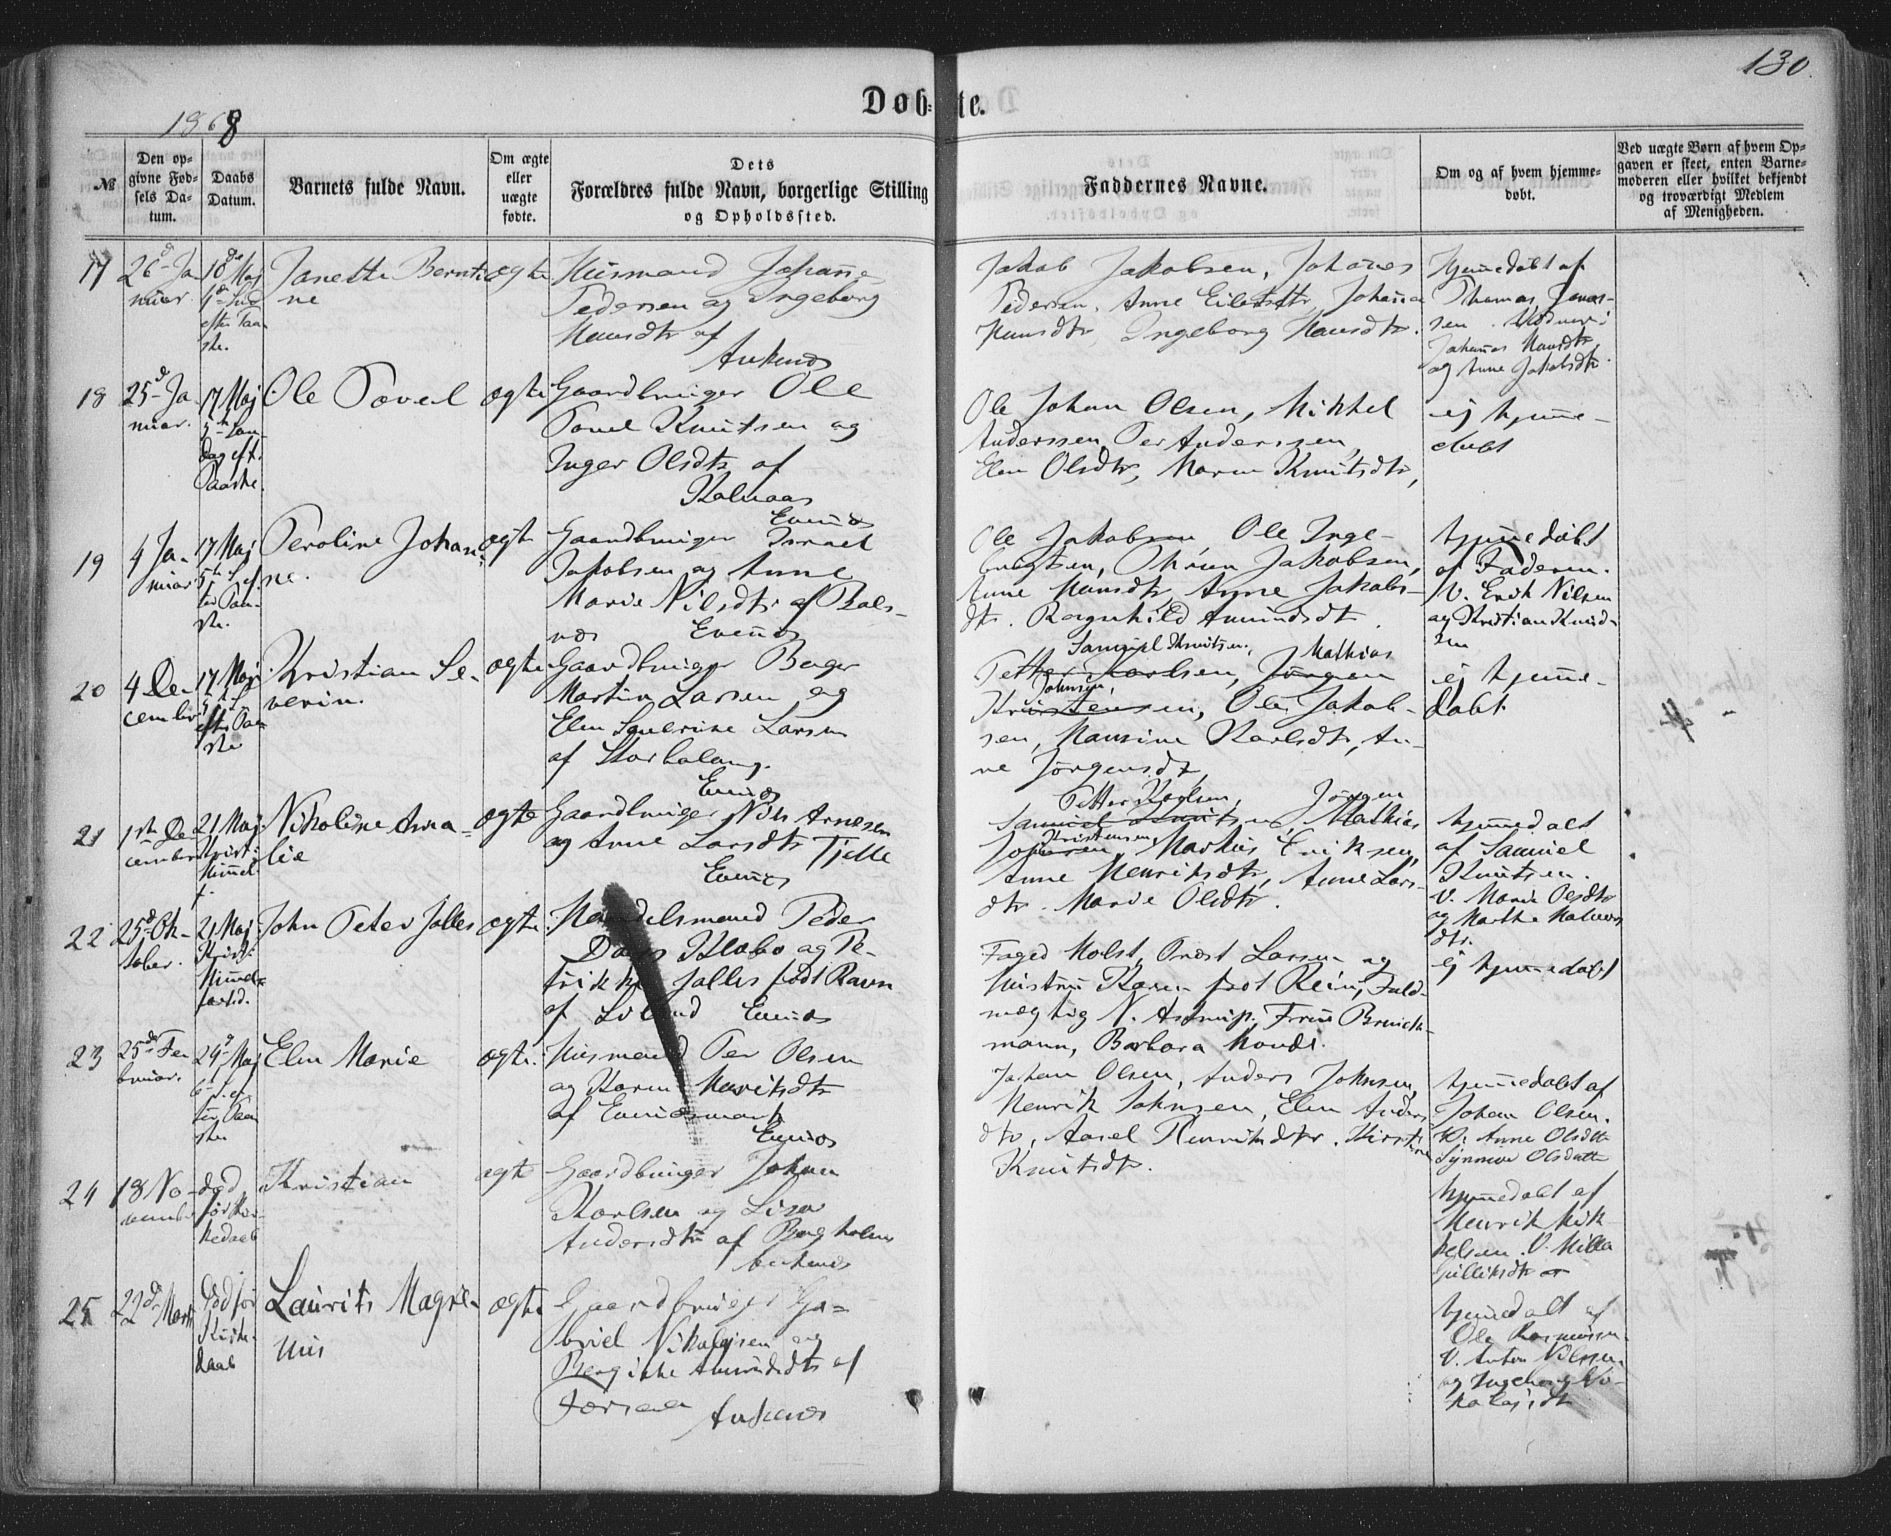 130.
Døb=te.
1868
№
Den op-
givne Fød-
sels Da-
tum.
Daabs
Datum.
Barnets fulde Navn.
Om ægte
eller
uægte
fødte.
Dets
Forældres fulde Navn, borgerlige Stilling
og Opholdssted.
Faddernes Navne.
Om og af hvem hjemme-
døbt.
Ved uægte Børn af hvem Op-
gaven er skeet, enten Barne-
moderen eller hvilket bekjendt
og troværdigt Medlem
af Menigheden.
17
26d Ja-
nuar.
10de Maj
efter Paa-
ske.
Janette Bernti-
ne
ægte
Husmand Johannes
Pedersen og Ingeborg
Hansdtr af
Ankenes
Jakob Jakobsen, Johannes
Pedersen, Anne Eilertsdtr, Johanna
Hansdtr, Ingeborg Hansdtr.
hjemmedøbt af
Thomas Jonas-
sen. Vidner:
Johannes Hansdtr
og Anne Jakobsdtr.
18
25d Ja-
nuar.
17 Maj
5te Søn-
dag eft.
Paaske.
Ole Povel
ægte
Gaardbruger Ole
Povel Knutsen og
Inger Olsdtr af
Evenes
Ole Johan Olsen, Mikkel
Anderssen, Per Anderssen,
Elen Olsdtr, Maren Knutsdtr,
ej hjemme-
døbt
19
4 Ja-
nuar
17 Maj
5te S. ef-
ter Paa-
ske.
Peroline Johan-
ne.
ægte
Gaardbruger Israel
Jakobsen og Anne
Marie Nilsdtr af Bals-
nes Evenes
Ole Jakobsen, Ole Inge-
brigtsen, Jakobsen,
Anne Hansdtr, Anne Jakobs-
dtr. Ragnhild Amundsdtr.
hjemmedøbt
af Faderen.
V. Erik Nilsen
og Kristian Knud-
sen
20
4 De-
cember
17 Maj
5te S.
efter Paa-
ske
Kristian Se-
verin.
ægte
Gaardbruger Berger
Martin Larsen og
Elen Severine Larsen
af
Evenes
Samuel Knutsen, Mathias
Petter Karlsen, Jørgen
Johnsen,
Kristensen, Ole Jakob-
sen, Hansine Karlsdtr, An-
ne Jørgensdtr,
ej hjemme-
døbt
21
1ste De-
cember
21 Maj
Kristi
Himmel-
f.
Nikoline Ama-
lie
ægte
Gaardbruger Nils Arnesen
og Anne Larsdtr Tjelle
Evenes
Petter Karlsen, Jørgen
Samuel Knutsen, Mathias
Kristensen
Johnsen, Markus Eriksen,
Anne Henriksdtr, Anne Lars-
dtr. Marie Olsdtr.
hjemmedøbt
af Samuel
Knutsen.
V. Marie Olsdtr
og Marthe Halvors
dtr.
22
25d Ok-
tober.
21 Maj
Kristi
Himmel-
fartsd.
John Peter Jalles
ægte
Handelsmand Peder
Klæbo og Pe-
trikke Jalles født Ravn
af Evenes
Foged Holst, Provst Larsen og
Hustru Karen født Rein, Fuld-
mægtig N. Astrup, Frue Brinch-
mann, Barbara
ej hjemmedøbt
23
25de Fe-
bruar.
24d Maj
6 S. ef-
ter Paa-
ske
Elen Marie
ægte.
Husmand Per Olsen
og Karen Henriksdtr
af Evenesmark
Evenes
Johan Olsen, Anders Johnsen,
Henrik Johnsen, Elen Anders
dtr, Aasel Henriksdtr. Kirstine
Knutsdtr.
hjemmedøbt af
Johan Olsen.
V. Anne Olsdtr
Synnøve Olsdatter
24
18 No-
vember
død
før Kir-
kedaab
Kristian
ægte
Gaardbruger Johan
Karlsen og Lisa
Andersdtr af Bergholm
Ankenes
hjemmedøbt af
Henrik Mik-
kelsen. V. Milla
Gulliksdtr
25
22d Marts
død før
Kirke-
daab
Laurits Magne-
us
ægte
Gaardbruger Ga-
briel Nikolajsen og
Bergitte Amundsdtr af
Ankenes
hjemmedøbt af
Ole Rasmussen.
V. Anton Nilssen.
og Ingeborg Ni-
kolajsdtr